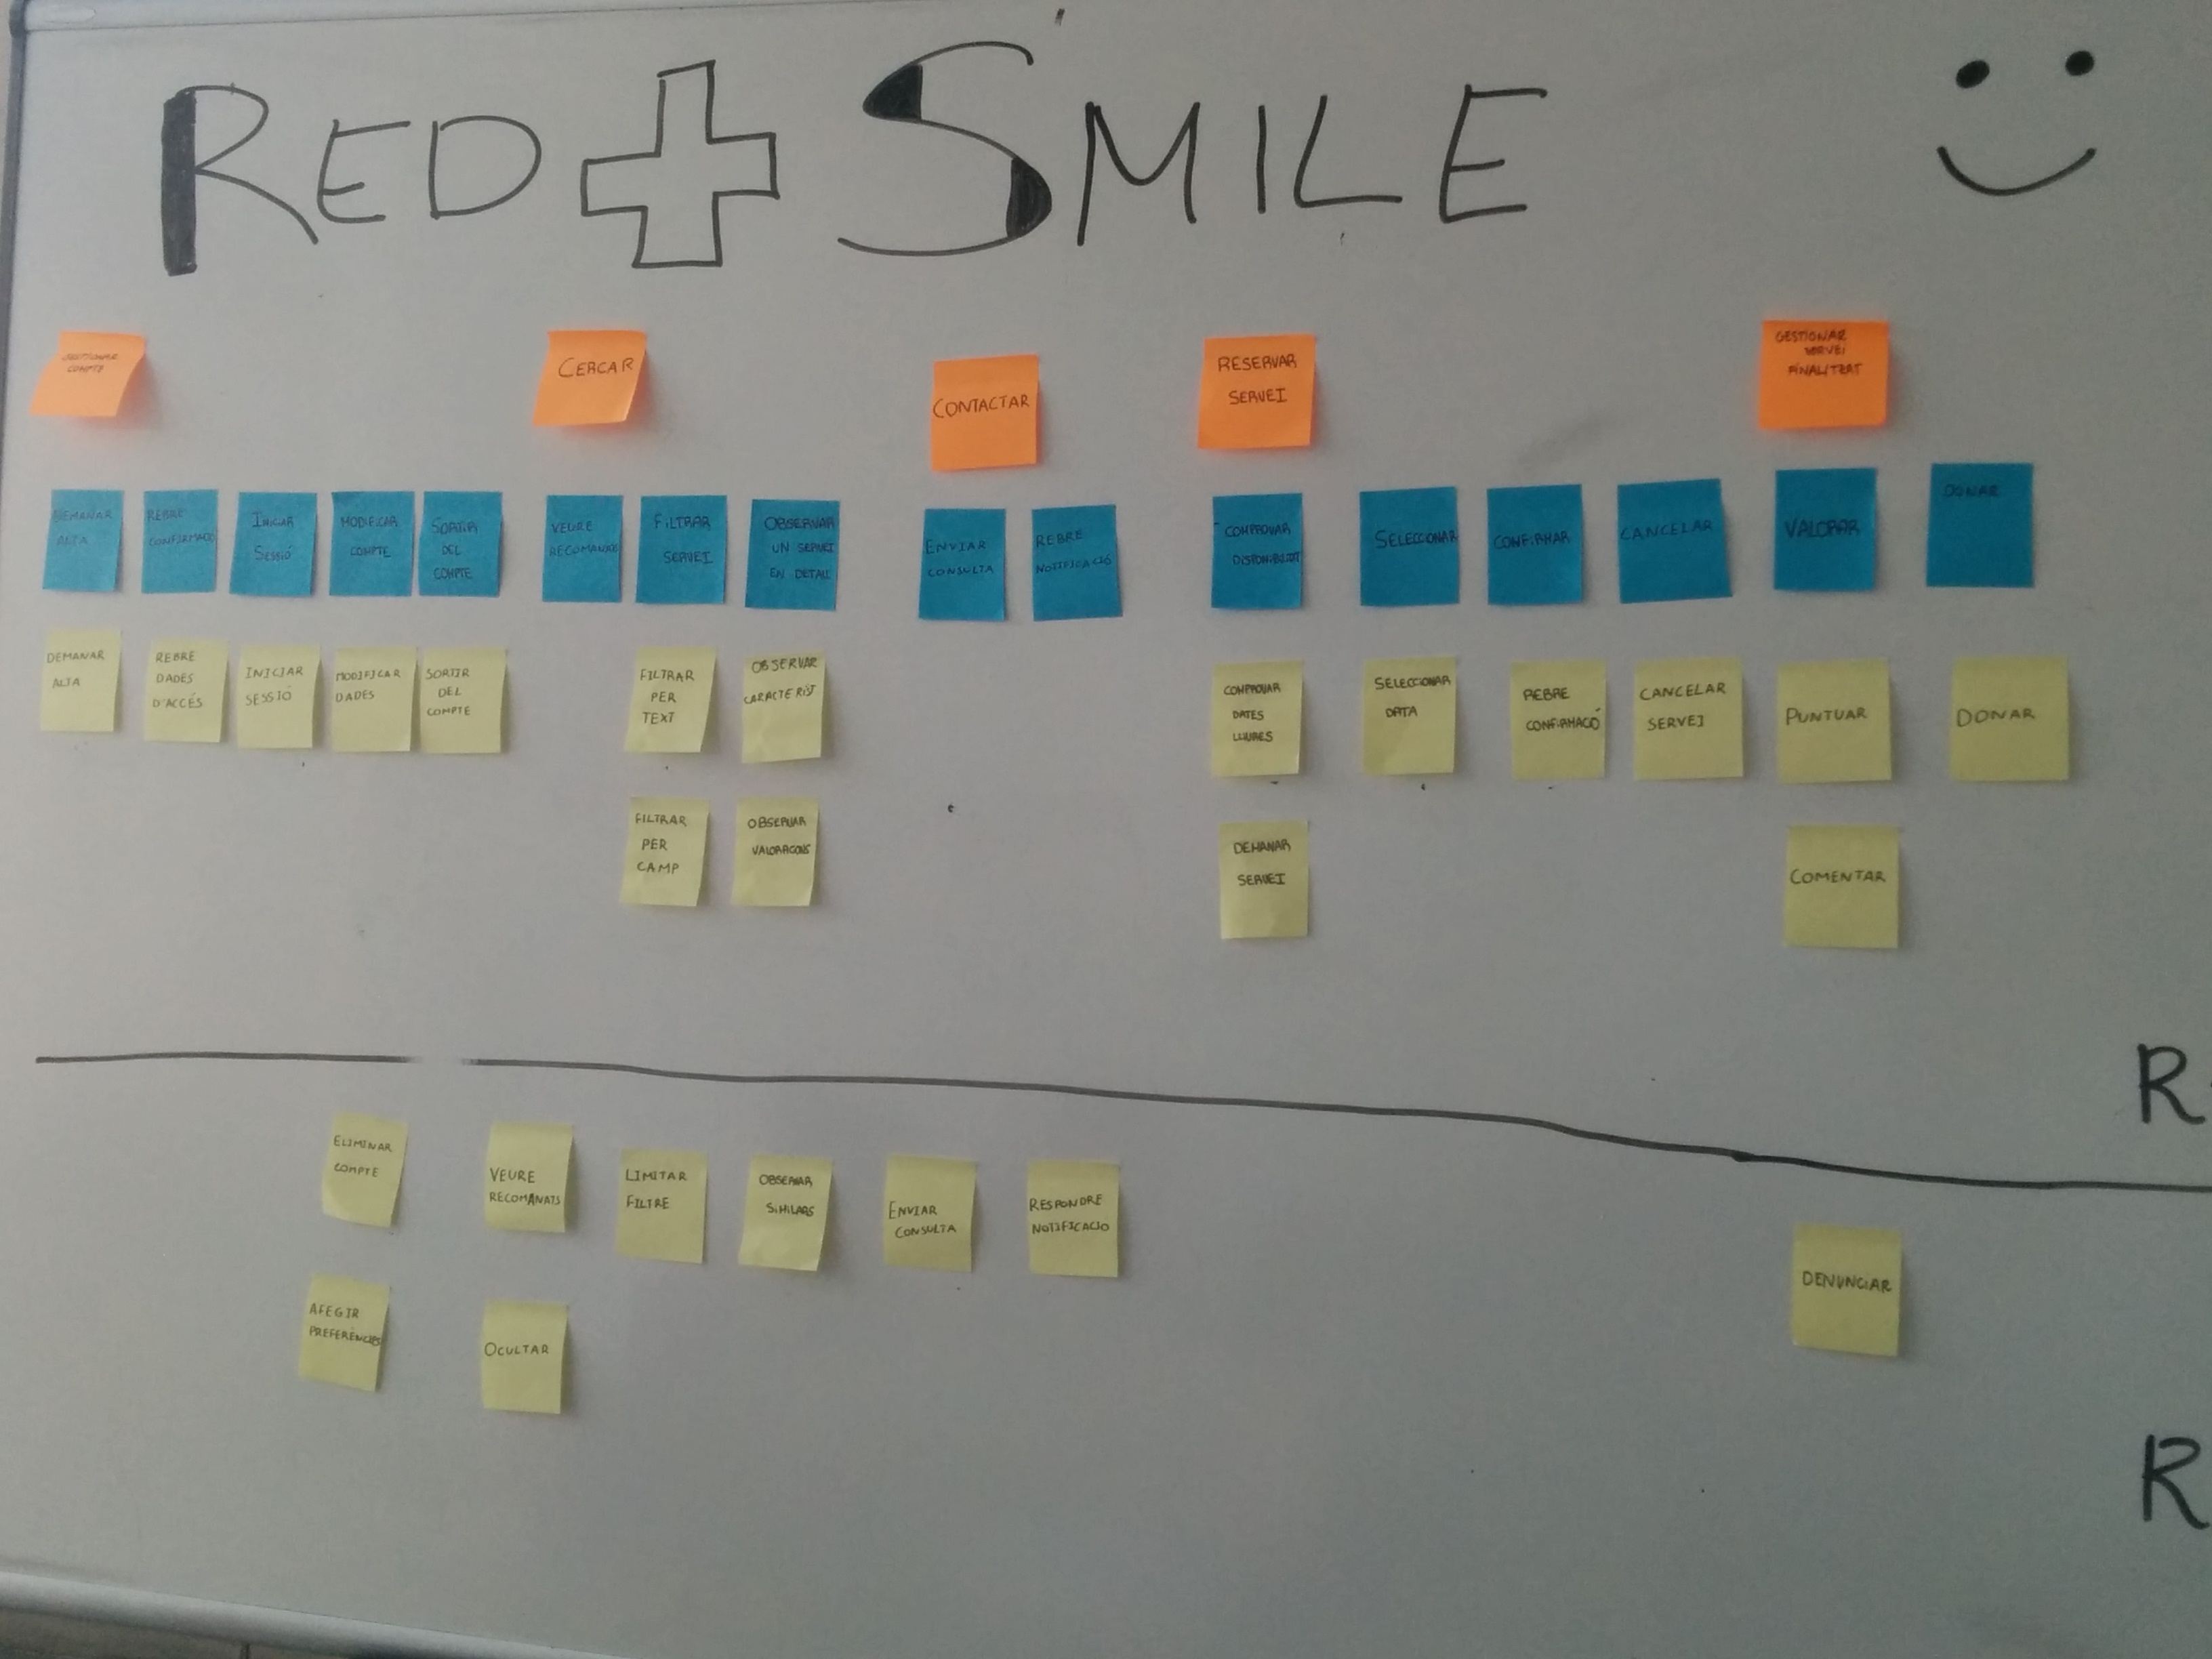 RED SMILE
GESTIONAR
COMPTE
CERCAR
CONTACTAR
RESERVAR
SERVEI
GESTIONAR
SERVEI
FINALITZAT
DEMANAR
ALTA
REBRE
CONFIRMACIÓ
INICIAR
SESSIÓ
MODIFICAR
COMPTE
SORTIR
DEL
COMPTE
VEURE
RECOMANATS
FILTRAR
SERVEI
OBSERVAR
UN SERVEI
EN DETALL
ENVIAR
CONSULTA
REBRE
NOTIFICACIÓ
COMPROVAR
DISPONIBILITAT
SELECCIONAR
CONFIRMAR
CANCELAR
VALORAR
DONAR
DEMANAR
ALTA
REBRE
DADES
D'ACCÉS
INICIAR
SESSIÓ
MODIFICAR
DADES
SORTIR
DEL
COMPTE
FILTRAR
PER
TEXT
OBSERVAR
CARACTERIST
COMPROVAR
DATES
LLIURES
SELECCIONAR
DATA
REBRE
CONFIRMACIÓ
CANCELAR
SERVEI
PUNTUAR
DONAR
FILTRAR
PER
CAMP
OBSERVAR
VALORACIONS
DEMANAR
SERVEI
COMENTAR
R
ELIMINAR
COMPTE
VEURE
RECOMANATS
LIMITAR
FILTRE
OBSERVAR
SIMILARS
ENVIAR
CONSULTA
RESPONDRE
NOTIFICACIO
DENUNCIAR
AFEGIR
PREFERÈNCIES
OCULTAR
R